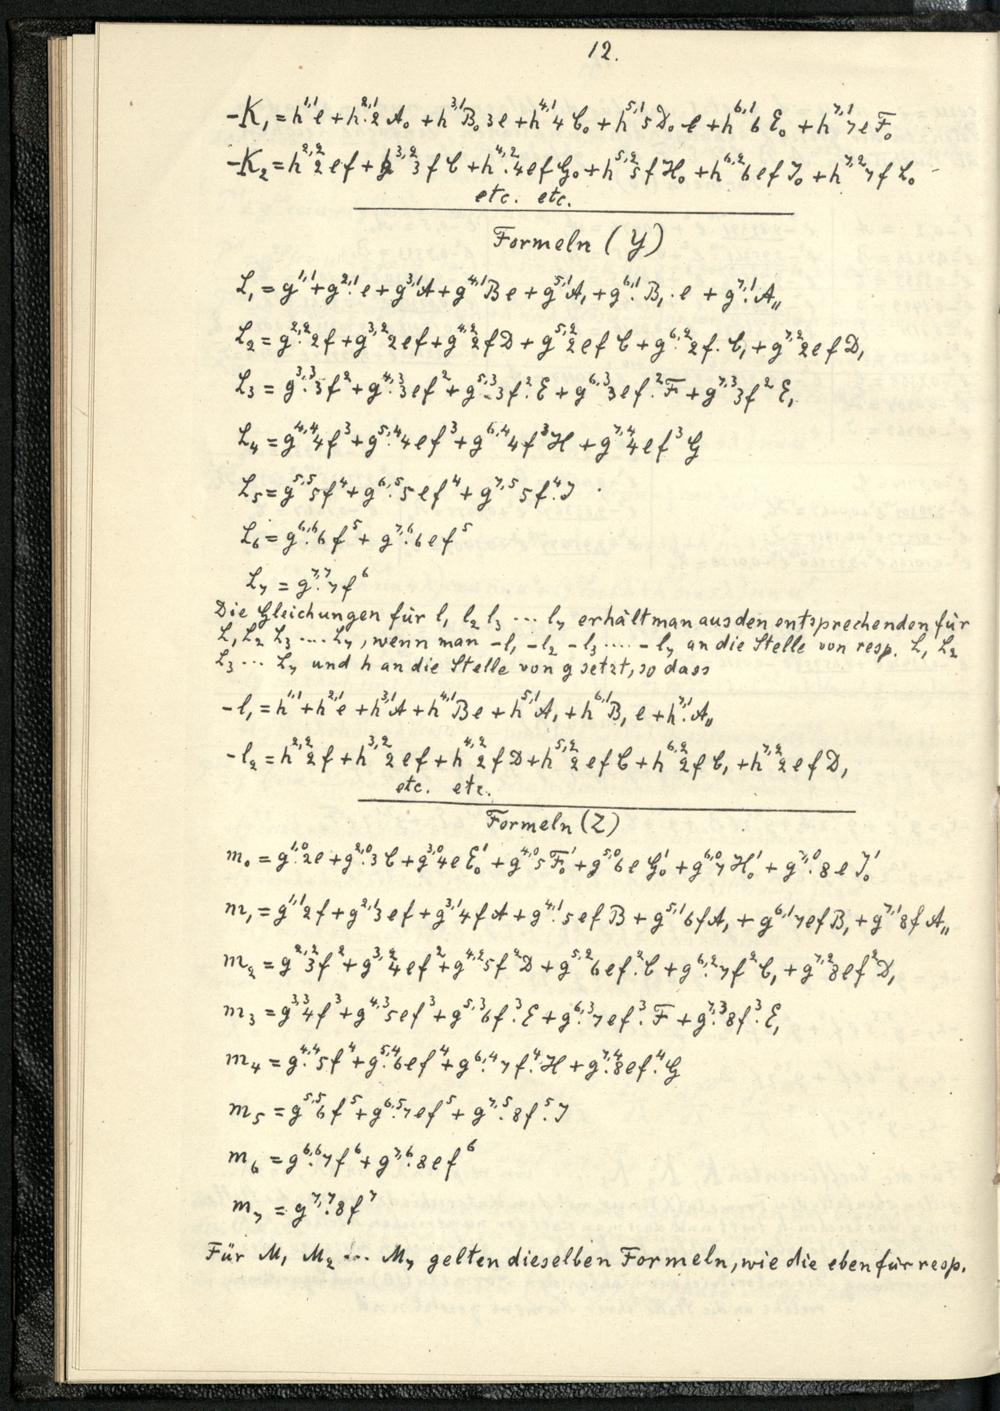 12.
-K₁ = h^{1,1} e + h^{2,1}.2 A₀ + h^{3,1} B₀ 3e + h^{4,1} 4 C₀ + h^{5,1} 5 D₀ e + h^{6,1} 6 E₀ + h^{7,1} 7 e F₀
-K₂ = h^{2,2} 2 e f + h^{3,2} 3 f C + h^{4,2}.4 e f G₀ + h^{5,2} 5 f H₀ + h^{6,2} 6 e f J₀ + h^{7,2} 7 f L₀
etc. etc.
Formeln (Y)
L₁ = g^{1,1} + g^{2,1}.e + g^{3,1} A + g^{4,1} B e + g^{5,1} A, + g^{6,1}. B,. e + g^{7,1}. A,,
L₂ = g^{2,2}.2f + g^{3,2} 2ef + g^{4,2}.2fD + g^{5,2}.2ef C + g^{6,2}.2f. C, + g^{7,2}.2ef D,
L₃ = g^{3,3}.3f² + g^{4,3}.3ef² + g^{5,3}.3f².E + g^{6,3} 3ef².F + g^{7,3}.3f² E,
L₄ = g^{4,4}.4f³ + g^{5,4}.4ef³ + g^{6,4}.4f³H + g^{7,4}.4ef³ G
L₅ = g^{5,5}.5f⁴ + g^{6,5}.5ef⁴ + g^{7,5}.5f⁴.J
L₆ = g^{6,6}.6f⁵ + g^{7,6}.6ef⁵
L₇ = g^{7,7}.7f⁶
Die Gleichungen für l₁ l₂ l₃ ... l₇ erhält man aus den entsprechenden für
L₁ L₂ L₃ .... L₇, wenn man -l₁ -l₂ -l₃ ..... -l₇ an die Stelle von resp. L₁ L₂
L₃ ... L₇ und h an die Stelle von g setzt, so dass
-l₁ = h^{1,1} + h^{2,1} e + h^{3,1} A + h^{4,1} B e + h^{5,1} A, + h^{6,1} B, e + h^{7,1}. A,,
-l₂ = h^{2,2}.2f + h^{3,2}.2ef + h^{4,2}.2f D + h^{5,2}.2ef C + h^{6,2}.2f C, + h^{7,2}.2ef D,
etc. etc.
Formeln (Z)
m₀ = g^{1,0}.2e + g^{2,0}.3 C + g^{3,0} 4e E₀' + g^{4,0} 5 F₀' + g^{5,0} 6e G₀' + g^{6,0} 7 H₀' + g^{7,0}.8 e J₀'
m₁ = g^{1,1} 2f + g^{2,1} 3ef + g^{3,1} 4f A + g^{4,1}.5ef B + g^{5,1} 6f A, + g^{6,1} 7ef B, + g^{7,1} 8f A,,
m₂ = g^{2,2}.3f² + g^{3,2}.4ef² + g^{4,2} 5f² D + g^{5,2} 6ef².C + g^{6,2}.7f² C, + g^{7,2} 8ef² D,
m₃ = g^{3,3}.4f³ + g^{4,3} 5ef³ + g^{5,3}.6f³.E + g^{6,3}.7ef³. F + g^{7,3}.8f³. E,
m₄ = g^{4,4}.5f⁴ + g^{5,4}.6ef⁴ + g^{6,4}.7f⁴.H + g^{7,4}.8ef⁴.G
m₅ = g^{5,5} 6f⁵ + g^{6,5}.7ef⁵ + g^{7,5}.8f⁵.J
m₆ = g^{6,6}.7f⁶ + g^{7,6}.8ef⁶
m₇ = g^{7,7}.8f⁷
Für M₁ M₂ ... M₇ gelten dieselben Formeln, wie die eben für resp.